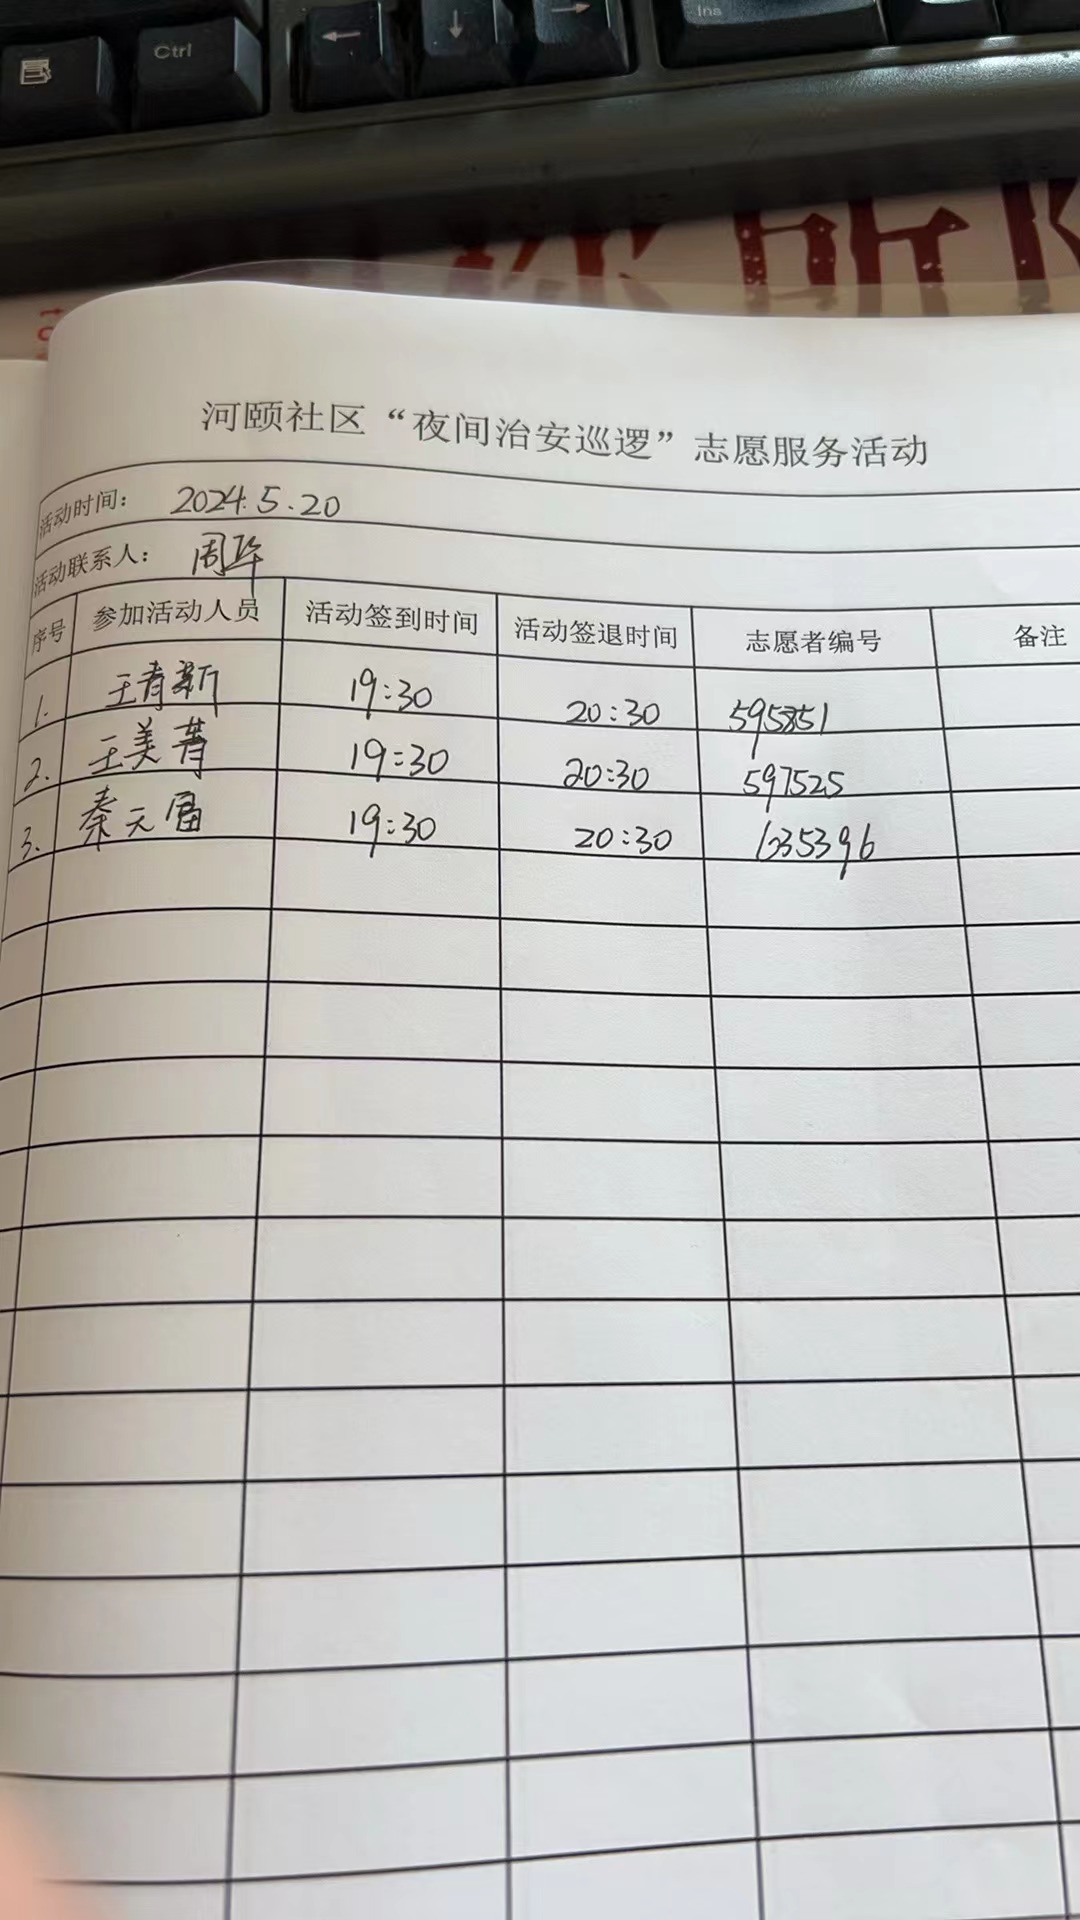 Ctrl
←
↓
→
Ins
河颐社区“夜间治安巡逻”志愿服务活动
活动时间： 2024.5.20
活动联系人： 周
序号 参加活动人员 活动签到时间 活动签退时间 志愿者编号 备注
1. 王青新 19:30 20:30 595851
2. 王美菁 19:30 20:30 597525
3. 秦元富 19:30 20:30 635396